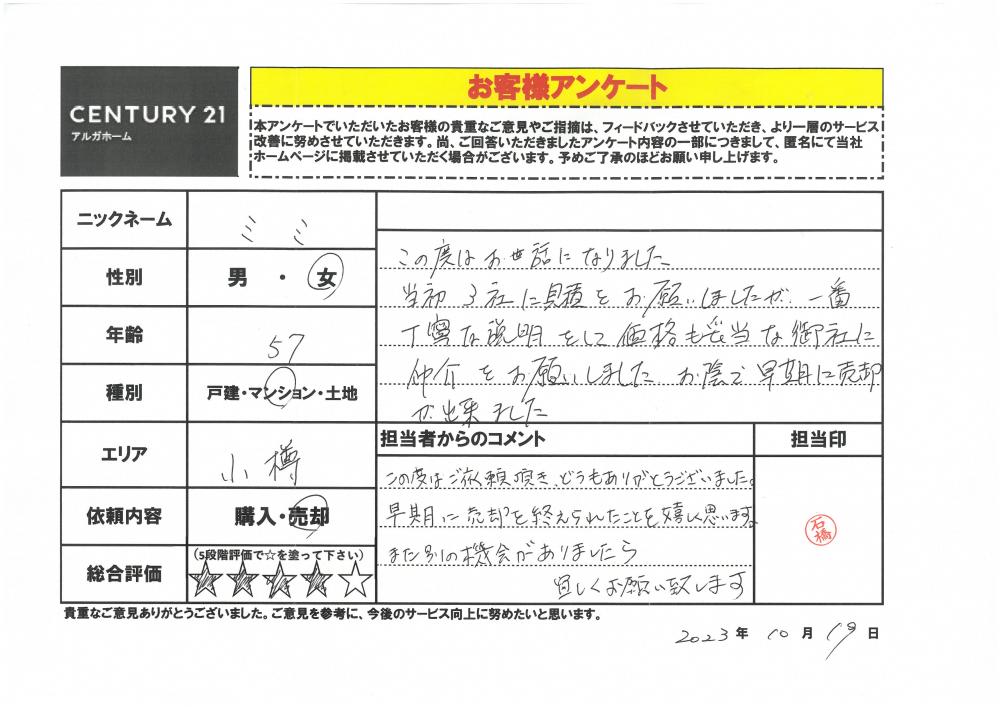 CENTURY 21
アルガホーム
お客様アンケート
本アンケートでいただいたお客様の貴重なご意見やご指摘は、フィードバックさせていただき、より一層のサービス
改善に努めさせていただきます。尚、ご回答いただきましたアンケート内容の一部につきまして、匿名にて当社
ホームページに掲載させていただく場合がございます。予めご了承のほどお願い申し上げます。
ニックネーム
ミミ
性別
男 ・ 女
年齢
57
種別
戸建・マンション・土地
エリア
小樽
依頼内容
購入・売却
総合評価
（5段階評価で☆を塗って下さい）
★★★★☆
この度はお世話になりました
当初3社に見積をお願いしましたが、一番
丁寧な説明をして価格も妥当な御社に
仲介をお願いしました お陰で早期に売却
が出来ました
担当者からのコメント
この度はご依頼頂き、どうもありがとうございました。
早期に売却を終えられたことを嬉しく思います。
また別の機会がありましたら
宜しくお願い致します
担当印
石橋
貴重なご意見ありがとうございました。ご意見を参考に、今後のサービス向上に努めたいと思います。
2023 年 10 月 19 日